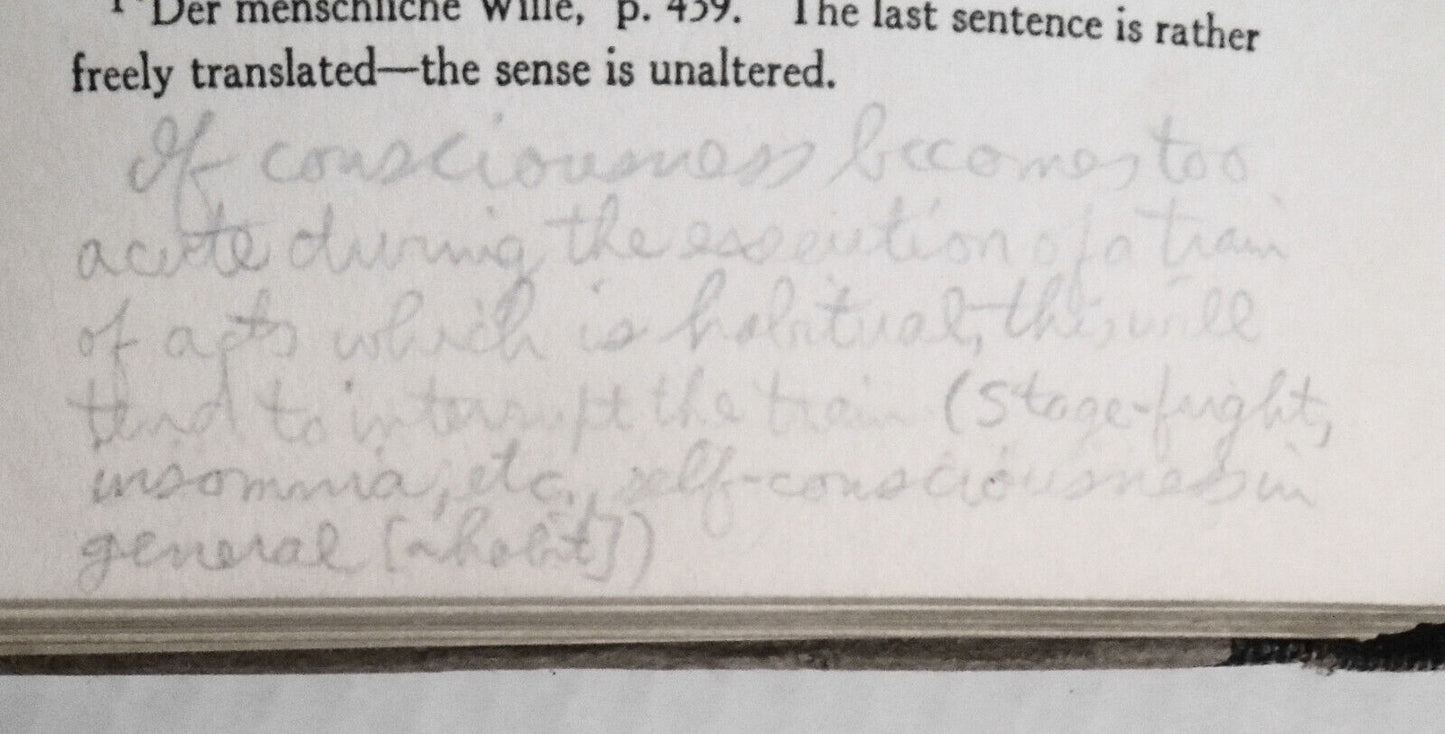 ¹ Der menschliche Wille, p. 439. The last sentence is rather
freely translated—the sense is unaltered.
If consciousness becomes too
acute during the execution of a train
of acts which is habitual, this will
tend to interrupt the train (stage-fright,
insomnia, etc., self-consciousness in
general [a habit])